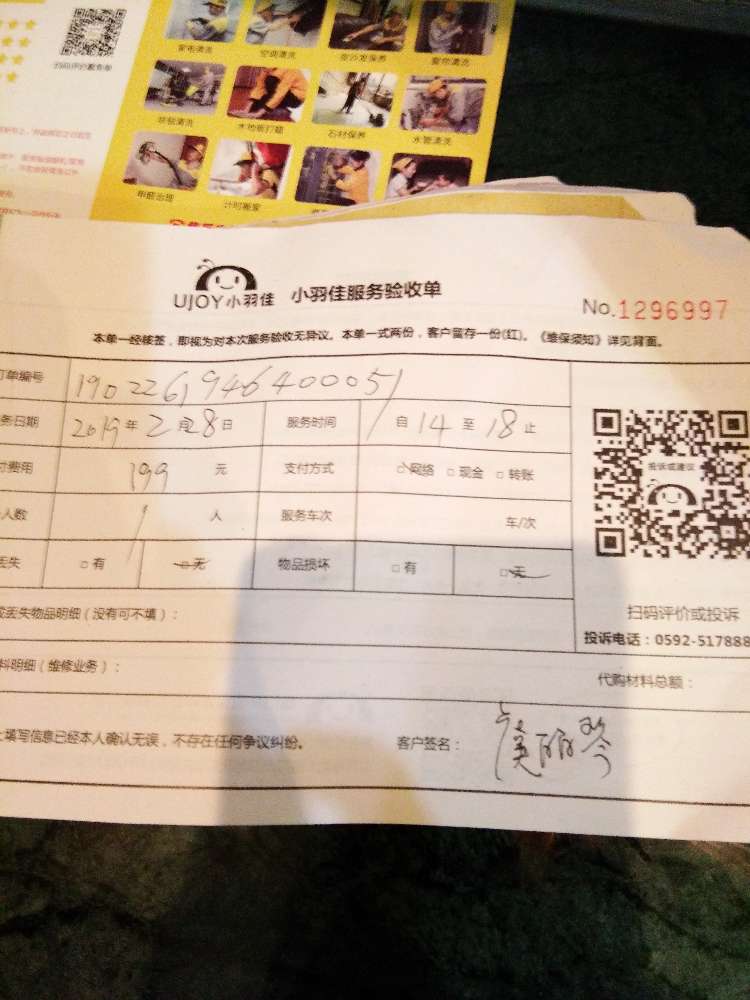 家电清洗 空调清洗 皮沙发保养 窗帘清洗
地毯清洗 木地板打蜡 石材保养 水管清洗
甲醛治理 计时搬家
UJOY小羽佳 小羽佳服务验收单
No.1296997
本单一经核签，即视为对本次服务验收无异议。本单一式两份，客户留存一份(红)。《维保须知》详见背面。
订单编号 1902261946400051
务日期 2019年2月28日 服务时间 自14至18止
付费用 199 元 支付方式 □网络 □现金 □转账
人数 1 人 服务车次 车/次
丢失 □有 □无 物品损坏 □有 □无
投诉或建议
扫码评价或投诉
投诉电话：0592-517888
或丢失物品明细（没有可不填）：
料明细（维修业务）： 代购材料总额：
上填写信息已经本人确认无误，不存在任何争议纠纷。 客户签名：虞丽琴